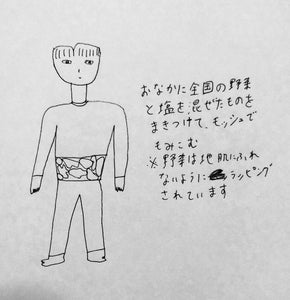 おなかに全国の野菜
と塩を混ぜたものを
まきつけて、モッシュで
もみこむ
※野菜は地肌にふれ
ないようにラッピング
されています